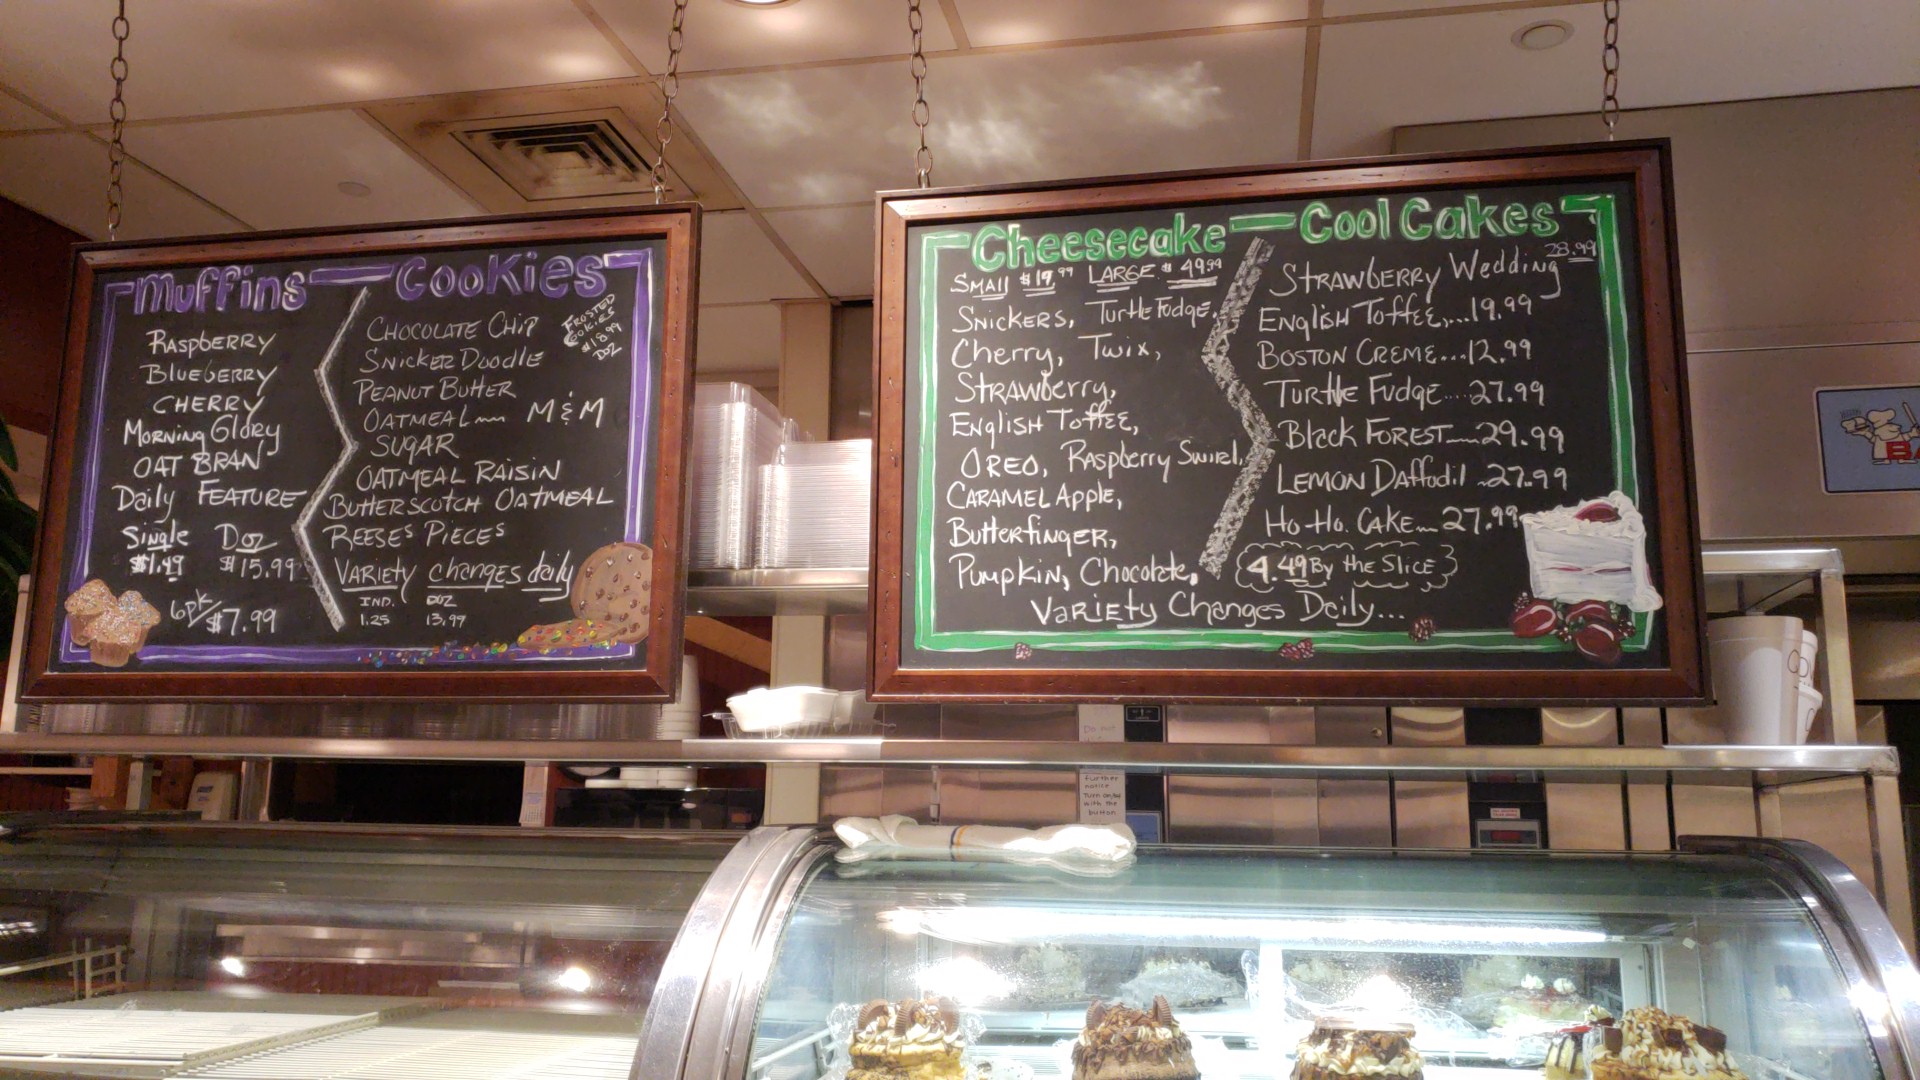 Muffins
Raspberry
Blueberry
Cherry
Morning Glory
Oat Bran
Daily Feature
Single Doz
$1.49 $15.99
6pk/$7.99
Cookies
Frosted
Cookies
$18.99
Doz
Chocolate Chip
Snicker Doodle
Peanut Butter
Oatmeal M & M
Sugar
Oatmeal Raisin
Butterscotch Oatmeal
Reese's Pieces
Variety changes daily
Ind. Doz
1.25 13.99
Cheesecake
Small $19.99 Large $49.99
Snickers, Turtle Fudge,
Cherry, Twix,
Strawberry,
English Toffee,
Oreo, Raspberry Swirel,
Caramel Apple,
Butterfinger,
Pumpkin, Chocolate,
Cool Cakes
28.99
Strawberry Wedding
English Toffee....19.99
Boston Creme...12.99
Turtle Fudge....27.99
Black Forest 29.99
Lemon Daffodil 27.99
Ho Ho. Cake 27.99
4.49 By the Slice
Variety Changes Daily...
further
notice
Turn on/off
with the
button